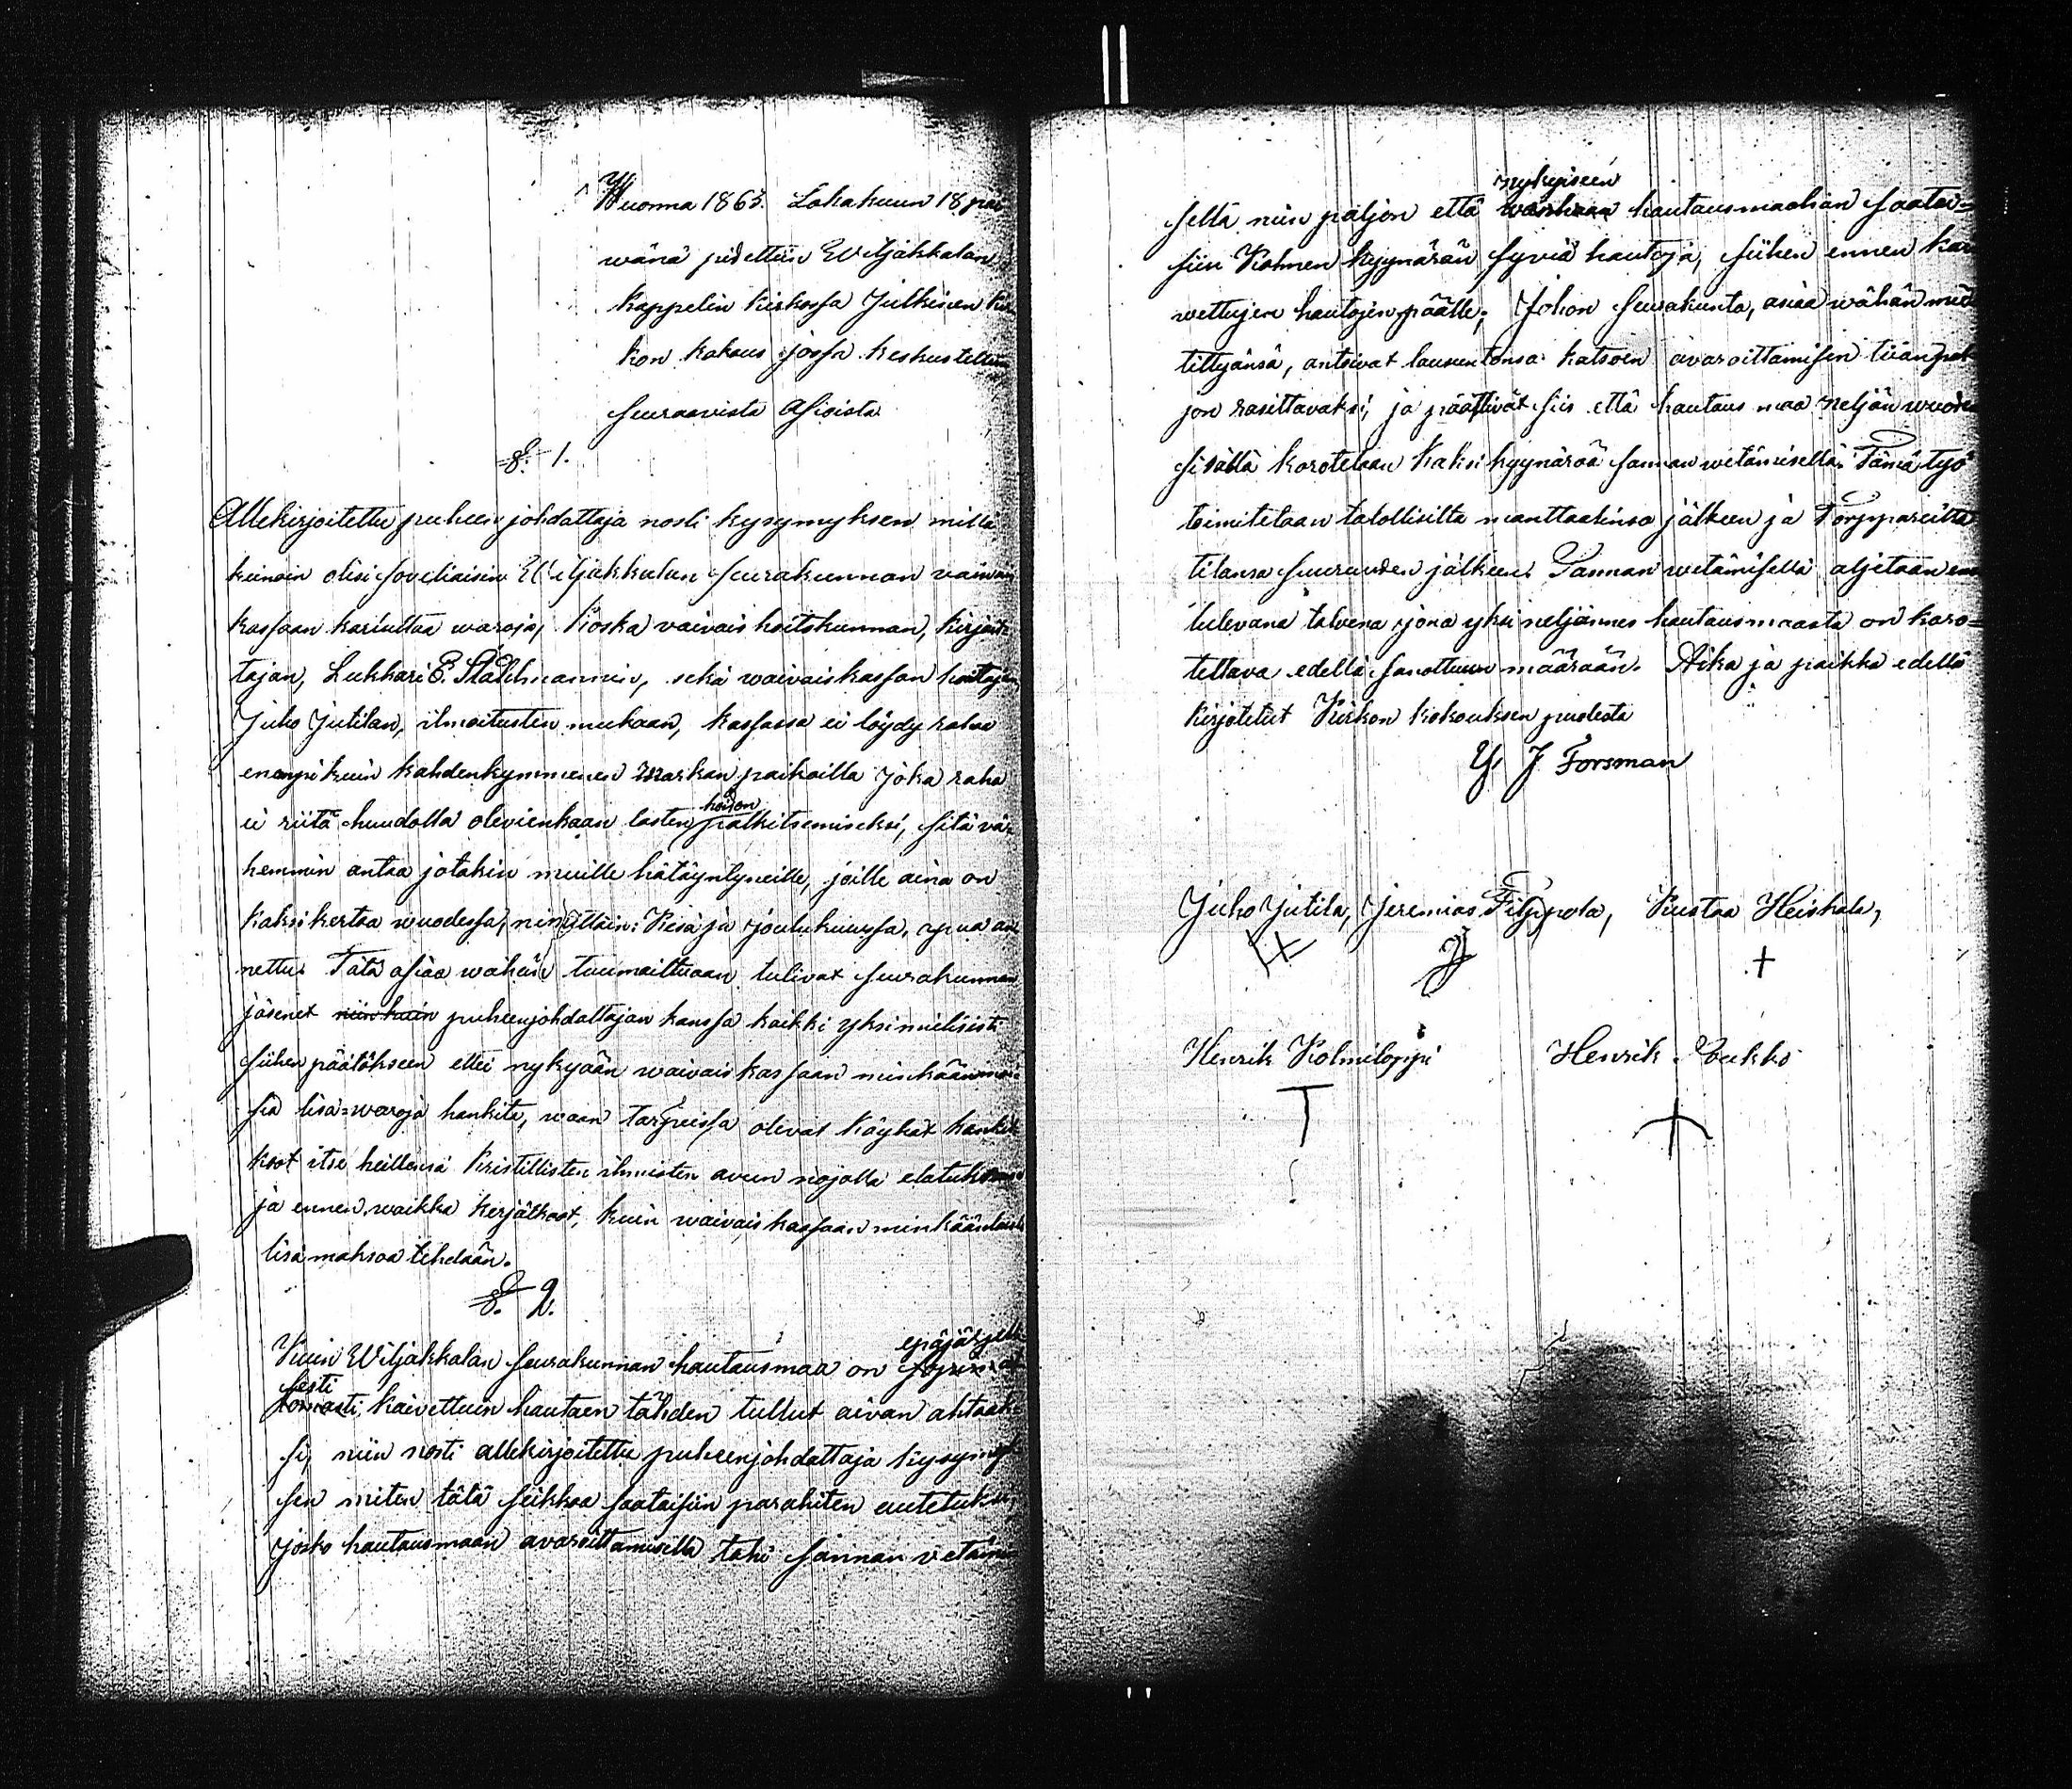 Wuonna 1863. Lokakuun 18 päi
wänä pidettiin Wiljakkalan
Kappelin kirkossa Julkinen kir
kon kokous jossa keskusteltiin
seuraavista Asioista
§. 1.
Allekirjoitettu puheen johdattaja nosti kysymyksen millä
keinoin olisi soveliaisin Wiljakkalan seurakunnan vaivais
kassaan kartuttaa waroja, Koska vaivais hoitokunnan, kirjoit
tajan, Lukkari E. Stålhmannin, sekä waivaiskassan hoitajan
Juho Jutilan, ilmoitusten mukaan, kassassa ei löydy rahaa
enempi kuin kahdenkymmenen markan paikoilla joka raha
hoidon
ei riitä huudolla olevienkaan lasten palkitsemiseksi, sitä vä-
hemmin antaa jotakin muille hätäyntyneille, joille aina on
kaksi kertaa wuodessa, nimittäin: Kesä ja joulukuussa, apua an
nettu. Tätä asiaa wähän tuumailtuaan tulivat seurakunnan
jäsenet niinkuin puheenjohdattajan kanssa kaikki yksimielisesti
siihen päätökseen ettei nykyään waivais kassaan minkäänmoi
sia lisä=waroja hankita, waan tarpeissa olevat köyhät hankit
koot itse heillensä kristillisten ihmisten avun nojalla elatuksensa
ja ennen waikka kerjätköot, kuin waivais kassaan minkäänlaista
lisä maksoa tehdään.
§. 2.
epäjärjelli
Kuin Wiljakkalan seurakunnan hautausmaa on
sesti
kaivettuin hautaen tähden tullut aivan ahtaak
si, niin nosti allekirjoitettu puheenjohdattaja kysymyk
sen miten tätä seikkaa saataisiin parahiten autetuksi,
josko hautausmaan avaroittamisella tahi sannan vetämi
nykyiseen
sellä niin paljon että wanhaan hautausmaahan saatai=
siin Kolmen kyynärän syviä hautoja, siihen ennen kai
wettujen hautojen päälle; Johon seurakunta, asiaa wähän miet
tittyänsä, antoivat lausuntonsa: katsoen avaroittamisen liian pal
jon rasittavaksi, ja päättivät siis että hautaus maa neljän wuoden
sisällä korotetaan kaksi kyynärää sannan wetämisellä. Tämä työ
toimitetaan talollisilta manttaalinsa jälkeen ja Torppareilta
tilansa suuruuden jälkeen. Sannan wetämisellä aljetaan ensi
tulevana talvena jona yksi neljännes hautausmaasta on koro=
tettava edellä sanottuun määrään. Aika ja paikka edellä
kirjotetut Kirkon kokouksen puolesta
Y. J Forsman
Juho Jutila, Jeremias Filppola, Kustaa Heiskala,
Henrik Kolmiloppi Henrik Poukko